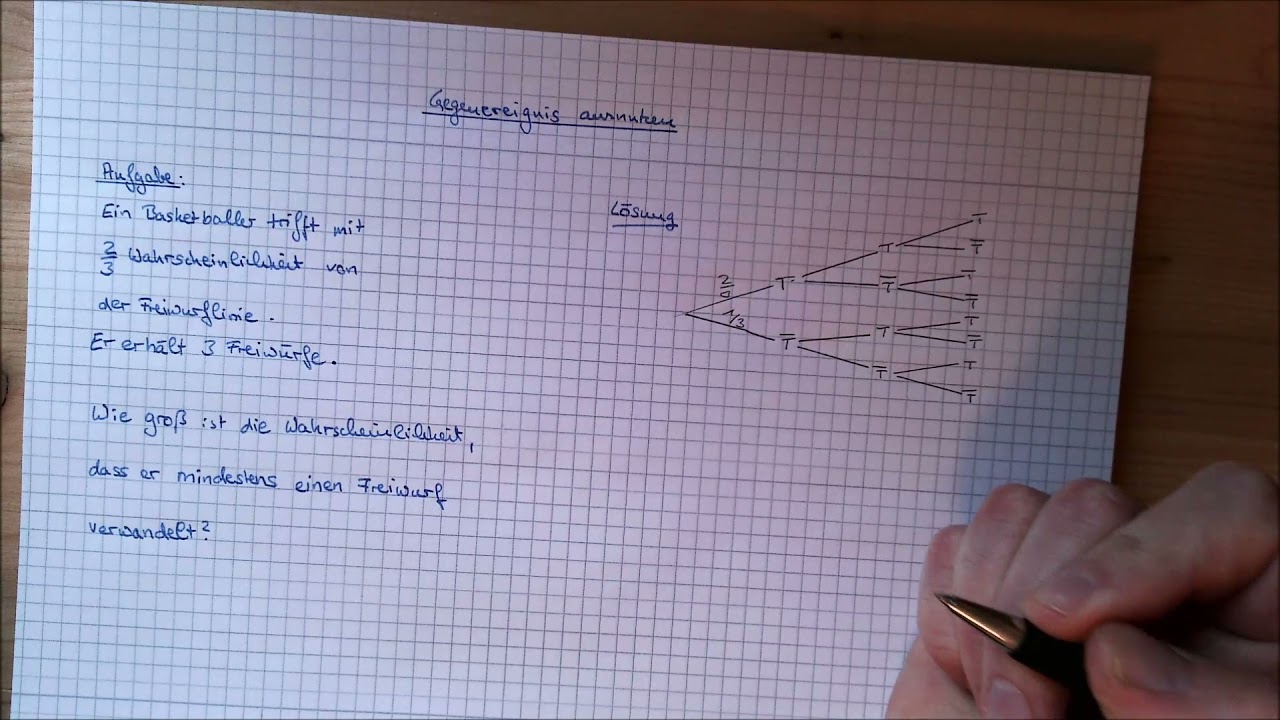 Gegenereignis ausnutzen
Aufgabe:
Ein Basketballer trifft mit
2/3 Wahrscheinlichkeit von
der Freiwurflinie.
Er erhält 3 Freiwürfe.
Wie groß ist die Wahrscheinlichkeit,
dass er mindestens einen Freiwurf
verwandelt?
Lösung
T
T T̅
2 T T̅ T
1/3 T̅
T̅ T T
T̅
T̅ T
T̅